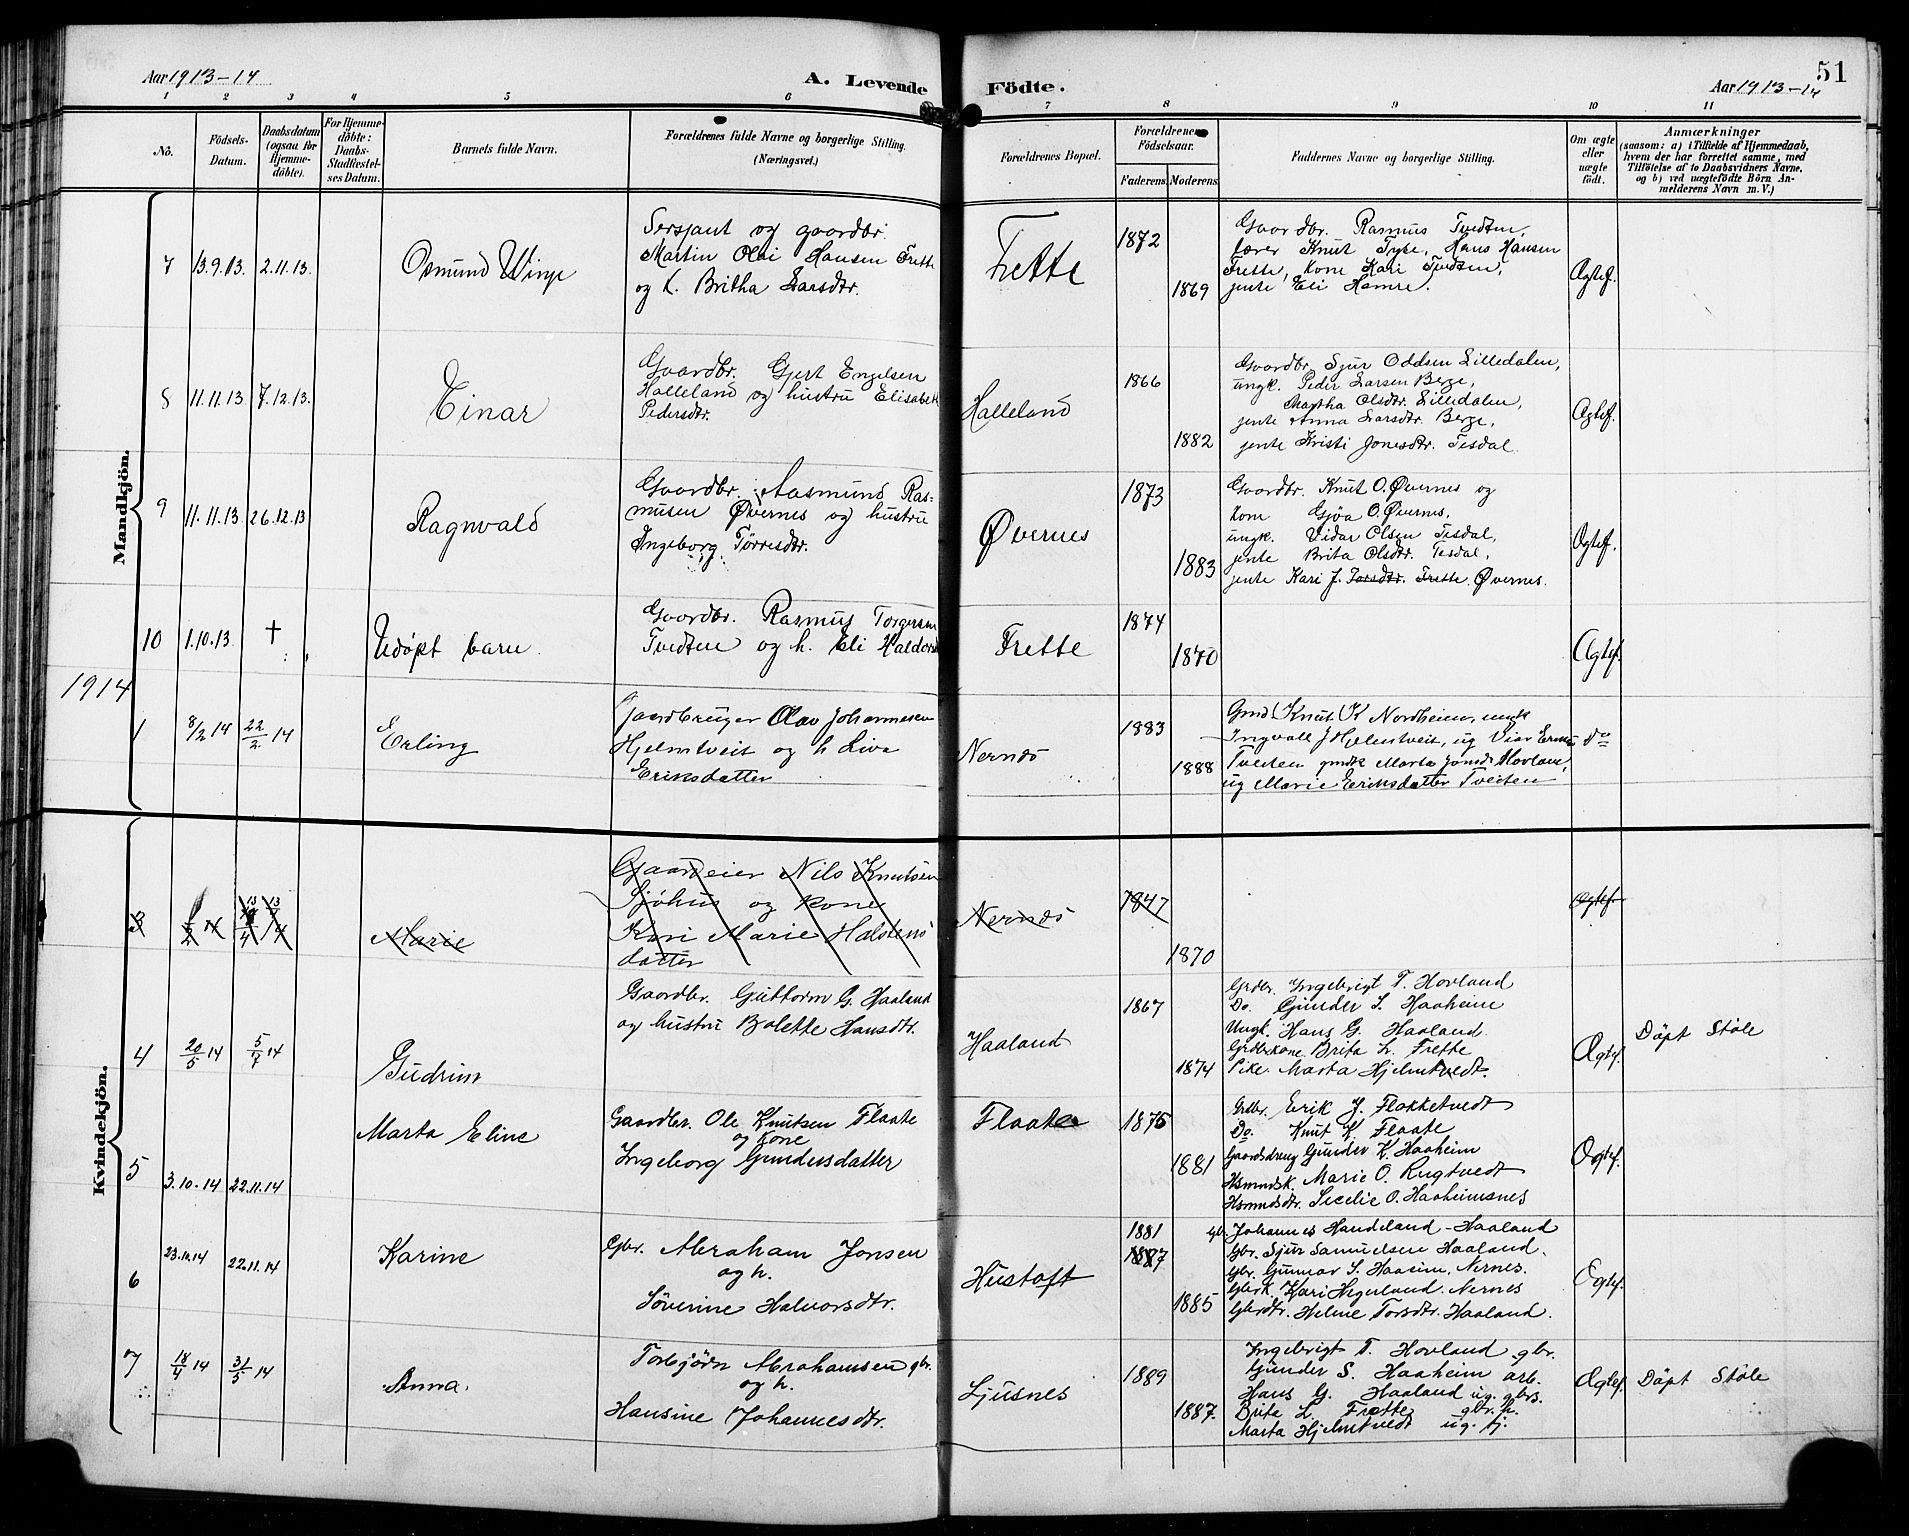 Aar 1913-14
A. Levende Födte.
51
Aar 1913-14
1 2 3 4 5 6 7 8 9 10 11
No.
Födsels-Datum.
Daabsdatum (ogsaa for Hjemme-döbte).
For Hjemme-döbte: Daabs-Stadfæstel-ses Datum.
Barnets fulde Navn.
Forældrenes fulde Navne og borgerlige Stilling.
(Næringsvei.)
Forældrenes Bopæl.
Forældrenes Födselsaar.
Faderens. Moderens.
Faddernes Navne og borgerlige Stilling.
Om ægte eller uægte födt.
Anmærkninger
(saasom: a) i Tilfælde af Hjemmedaab,
hvem der har forrettet samme, med
Tilföielse af to Daabsvidners Navne.
og b) ved uægtefödte Börn An-
melderens Navn m. V.)
Mandkjön.
7 13.9.13. 2.11.13. Osmund Winje
Sersjant og gaardbr.
Martin Olai Hansen Frette
og h. Britha Larsdtr.
Frette
1872
1869
Gaardbr. Rasmus Tvedten,
lærer Knut Tyse, Hans Hansen
Frette, kone Kari Tvedten,
jente Eli Hamre.
Ægtef.
8 11.11.13 7.12.13. Einar
Gaardbr. Gjert Engelsen
Halleland og hustru Elisabeth
Pedersdtr.
Halleland
1866
1882
Gaardbr Sjur Oddsen Lilledalen,
ungk. Peder Larsen Berge,
Martha Olsdtr. Lilledalen,
jente Anna Larsdtr Berge,
jente Kristi Jonesdtr. Tesdal.
Ægtef.
9 11.11.13. 26.12.13 Ragnvald
Gaardbr. Aasmund Ras-
musen Øvernes og hustru
Ingeborg Tørresdtr.
Øvernes
1873
1883
Gaardbr. Knut O. Øvernes og
kone Gjøa O. Øvernes,
ungk. Vidar Olsen Tesdal,
jente Brita Olsdtr. Tesdal,
jente Kari J. Torsdtr. Frette Øvernes.
Ægtef.
10 1.10.13. † Udøpt barn.
Gaardbr. Rasmus Torgersen
Tvedten og h. Eli Haldorsd
Frette
1874
1870
Ægtef.
1914
1 8/2 14 22/2 14 Erling
Gaardbruger Olav Johannesen
Hjelmtveit og h Liva
Eriksdatter
Nernes
1883
1888
Gmd Knut K Nordheim, ungk
Ingvall J Hjelmtveit, ug
Tveiten Marta Hovland,
ug Marie Eriksdatter Tveiten
Do
Kvindekjön.
3 Marie
Gaardeier Nils Knutsen
Sjøhus og kone
Kari Marie Halstens
datter
Nernes
1847
1870
Ægtef
4 20/5 14 5/7 14 Gudrun
Gaardbr. Guttorm G. Haaland
og hustru Bolette Hansdtr.
Haaland
1867
1874
Grdbr. Ingebrigt T. Hovland
Do. Gunder S. Haaheim
Ungk. Hans G. Haaland
Grdbrkone Brita L. Frette
Pike. Marta Hjelmtvedt.
Ægtef.
Döpt Stöle
5 3.10.14 22.11.14 Marta Eline
Gaardbr. Ole Knutsen Flaate
og kone
Ingeborg Gundersdatter
Flaate
1875
1881
Grdbr. Erik J. Flokketvedt
Do. Knut K. Flaate
Gaardsdreng Gunder K. Haaheim
Hsmndsk. Marie O. Rugtvedt
Hsmndsdtr. Secelie O. Haaheimsnes
Ægtef.
6 23.10.14 22.11.14 Karine
Gbr. Abraham Jonsen
og h.
Søverine Halvorsdtr.
Hustoft
1881
1887
1885
Gbr. Johannes Handeland-Haaland
Gbr. Sjur Samuelsen Haaland.
Gbr. Gunnar S. Haaeim, Nernes.
Gbrk. Kari Hegerland. Nernes
Gbrdtr. Helene Torsdtr. Haaland.
Ægtef.
7 18/4 14 31/5 14 Anna.
Torbjörn Abrahamsen gbr.
og h.
Hansine Johannesdtr.
Ljusnes
1889
1887.
Ingebrigt T. Hovland gbr.
Gunder S. Haaheim arb.
Hans G. Haaland ug. gbrs.
Brita L. Frette gbr. h.
Marta Hjelmtvedt ug. pj.
Ægtef.
Döpt Stöle